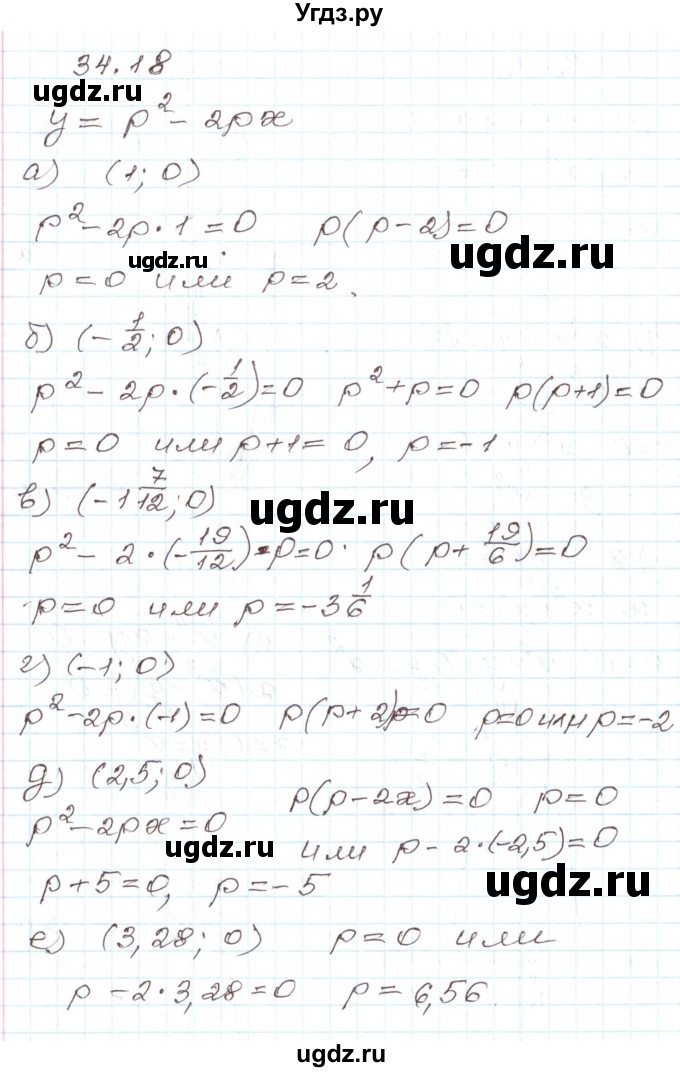 Угдз.ру
34.18
ugdz.ru
y = p² - 2px
а) (1; 0)
p² - 2p · 1 = 0   p(p - 2) = 0
ugdz.ru   ugdz.ru
p = 0 или p = 2.
б) (-1/2; 0)
p² - 2p · (-1/2) = 0   p² + p = 0   p(p+1) = 0
p = 0 или p+1 = 0, p = -1
в) (-1 7/12; 0)
ugdz.ru
p² - 2 · (-19/12) · p = 0   p(p + 19/6) = 0
p = 0 или p = -3 1/6
г) (-1; 0)
p² - 2p · (-1) = 0   p(p + 2) = 0   p = 0 или p = -2
д) (2,5; 0)   p(p - 2x) = 0   p = 0
p² - 2px = 0
ugdz.ru   или p - 2·(-2,5) = 0
p + 5 = 0, p = -5   ugdz.ru
е) (3,28; 0)   p = 0 или
p - 2 · 3,28 = 0   p = 6,56
ugdz.ru
ugdz.ru